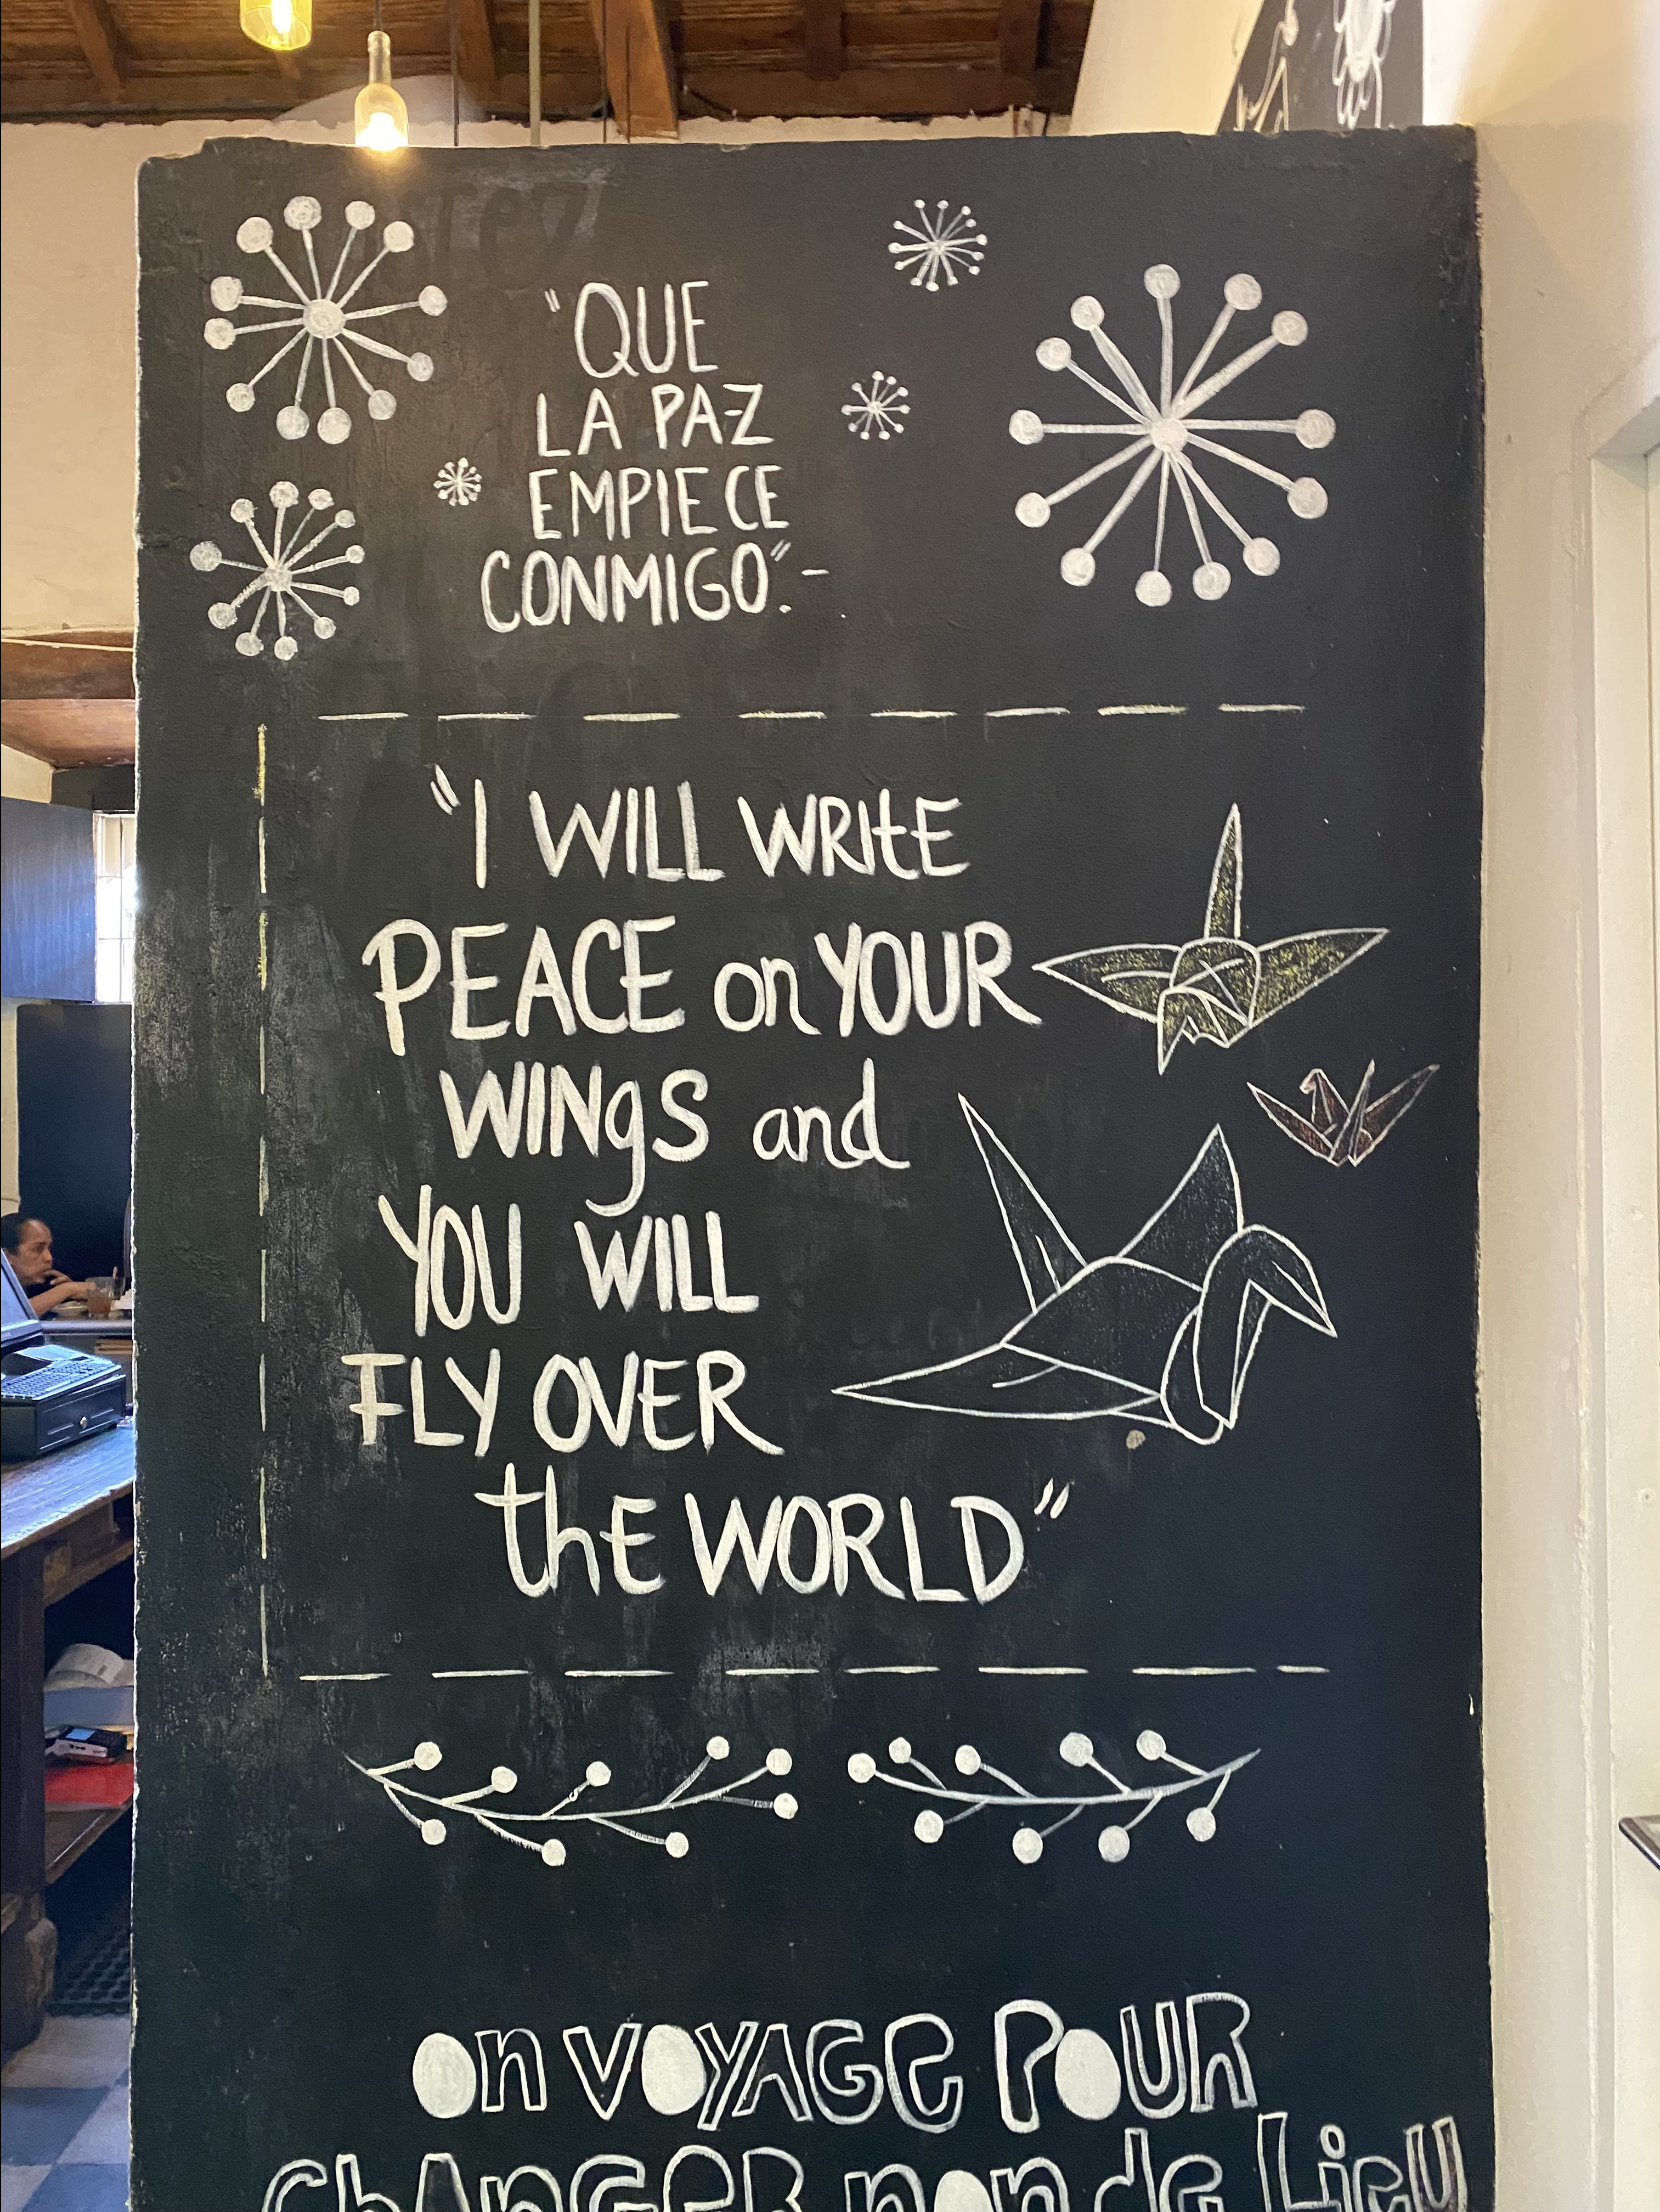 "QUE
LA PAZ
EMPIECE
CONMIGO".-
"I WILL WRItE
PEACE on YOUR
WINgS and
YOU WILL
FLY OVER
thE WORLD"
On VOYAGE POUR
ChAnGER non de Lieu